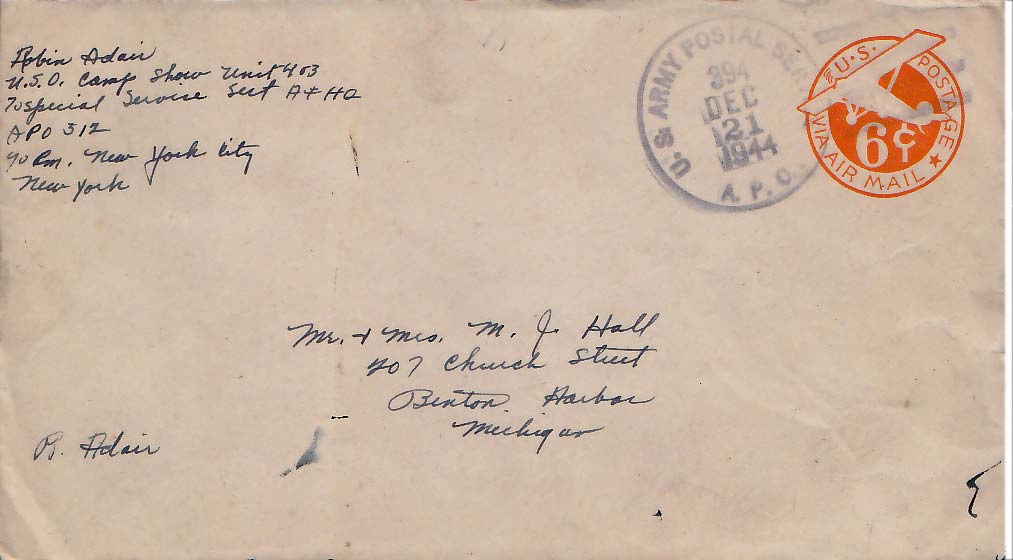 Robin Adair
U.S.O. Camp Show Unit 403
℅ Special Service Sect AFHQ
APO 512
℅ P.m. New York City
New York
U.S. ARMY POSTAL SER
394
DEC
21
1944
A.P.O.
U.S. POSTAGE
6¢
VIA AIR MAIL
Mr. + Mrs. M. J. Hall
407 Church Street
Benton Harbor
Michigan
R. Adair